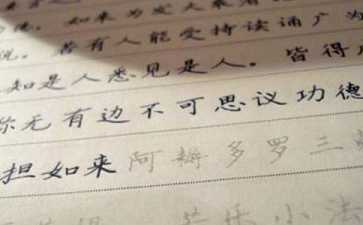 如来为发大
说。若有人能受持读诵广为
知是人悉见是人。皆得
无有边不可思议功德
担如来阿耨多罗三
乐小法